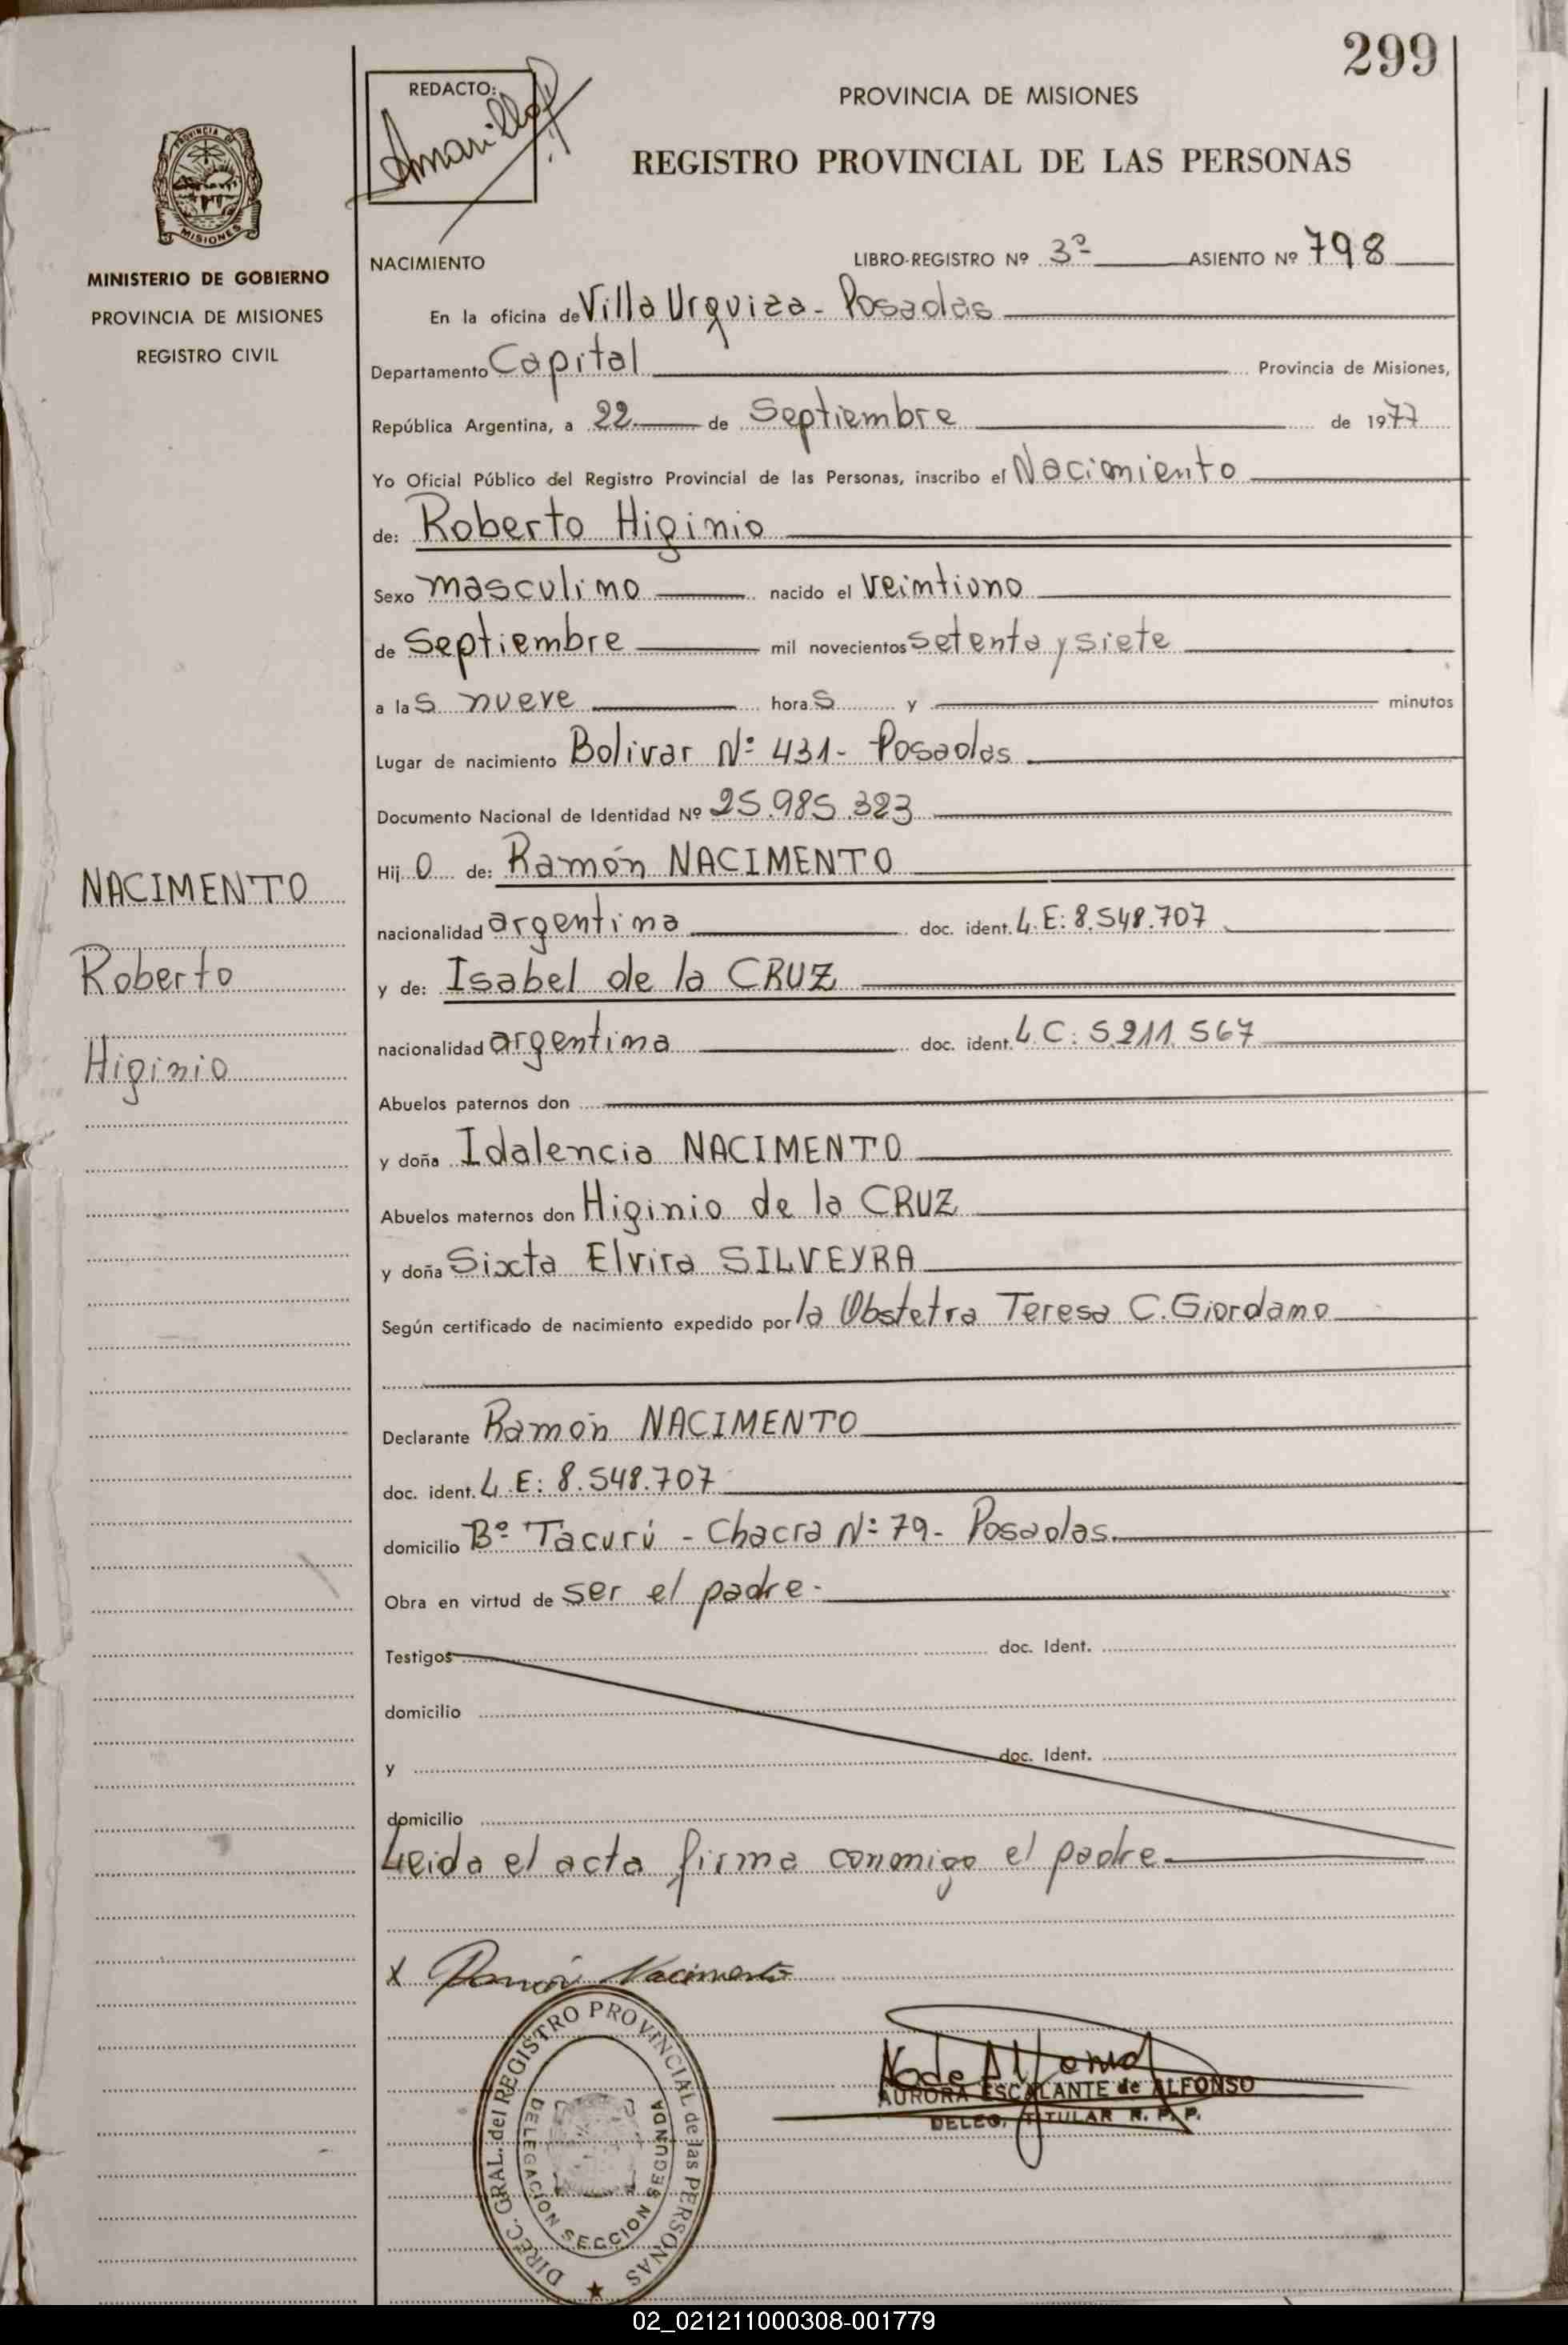 299
REDACTO:
PROVINCIA DE MISIONES
REGISTRO PROVINCIAL DE LAS PERSONAS
PROVINCIA DE
MISIONES
MINISTERIO DE GOBIERNO
PROVINCIA DE MISIONES
REGISTRO CIVIL
NACIMIENTO LIBRO-REGISTRO Nº 3º ASIENTO Nº 798
En la oficina de Villa Urquiza - Posadas
Departamento Capital Provincia de Misiones,
República Argentina, a 22 de Septiembre de 1977
Yo Oficial Público del Registro Provincial de las Personas, inscribo el Nacimiento
de: Roberto Higinio
Sexo masculino nacido el veintiuno
de Septiembre mil novecientos setenta y siete
a las nueve horas y minutos
Lugar de nacimiento Bolivar Nº 431- Posadas
Documento Nacional de Identidad Nº 25.985.323
Hijo de: Ramón NACIMENTO
nacionalidad argentina doc. ident. L.E: 8.548.707
y de: Isabel de la CRUZ
nacionalidad argentina doc. ident. L.C: 5.211.567
Abuelos paternos don
y doña Idalencia NACIMENTO
Abuelos maternos don Higinio de la CRUZ
y doña Sixta Elvira SILVEYRA
Según certificado de nacimiento expedido por la Obstetra Teresa C. Giordano
Declarante Ramón NACIMENTO
doc. ident. L.E: 8.548.707
domicilio Bº Tacurú - Chacra Nº 79- Posadas.
Obra en virtud de ser el padre-
Testigos doc. Ident.
domicilio
y doc. Ident.
domicilio
Leida el acta firma conmigo el padre
NACIMENTO
Roberto
Higinio
X Ramón Nacimento
DIREC. GRAL. del REGISTRO PROVINCIAL de las PERSONAS
DELEGACION SECCION SEGUNDA
AURORA ESCALANTE de ALFONSO
DELEG. TITULAR R. P. P.
02_021211000308-001779